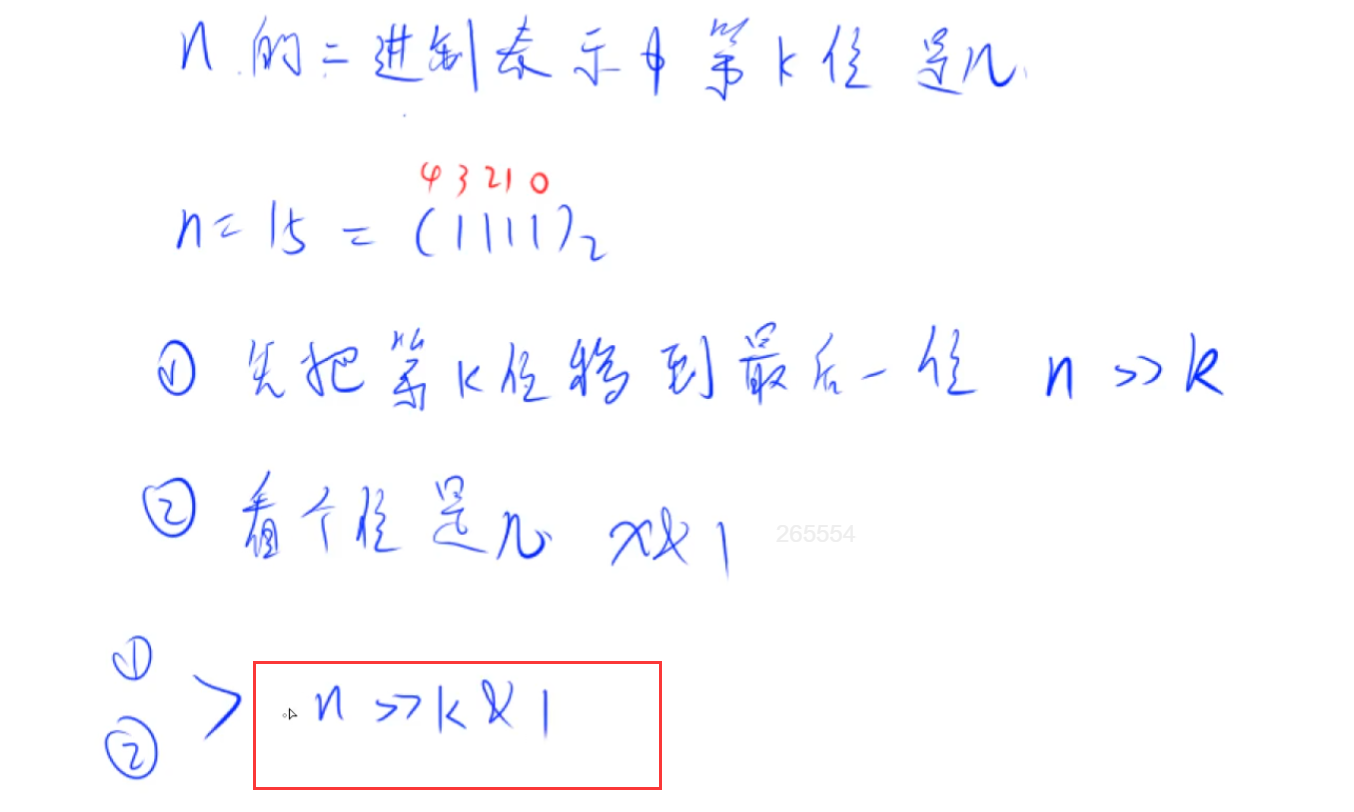 n的二进制表示中第k位是几
4 3 2 1 0
n = 15 = (1111)₂
① 先把第k位移到最后一位 n >> k
② 看个位是几 x & 1
265554
①
② > n >> k & 1